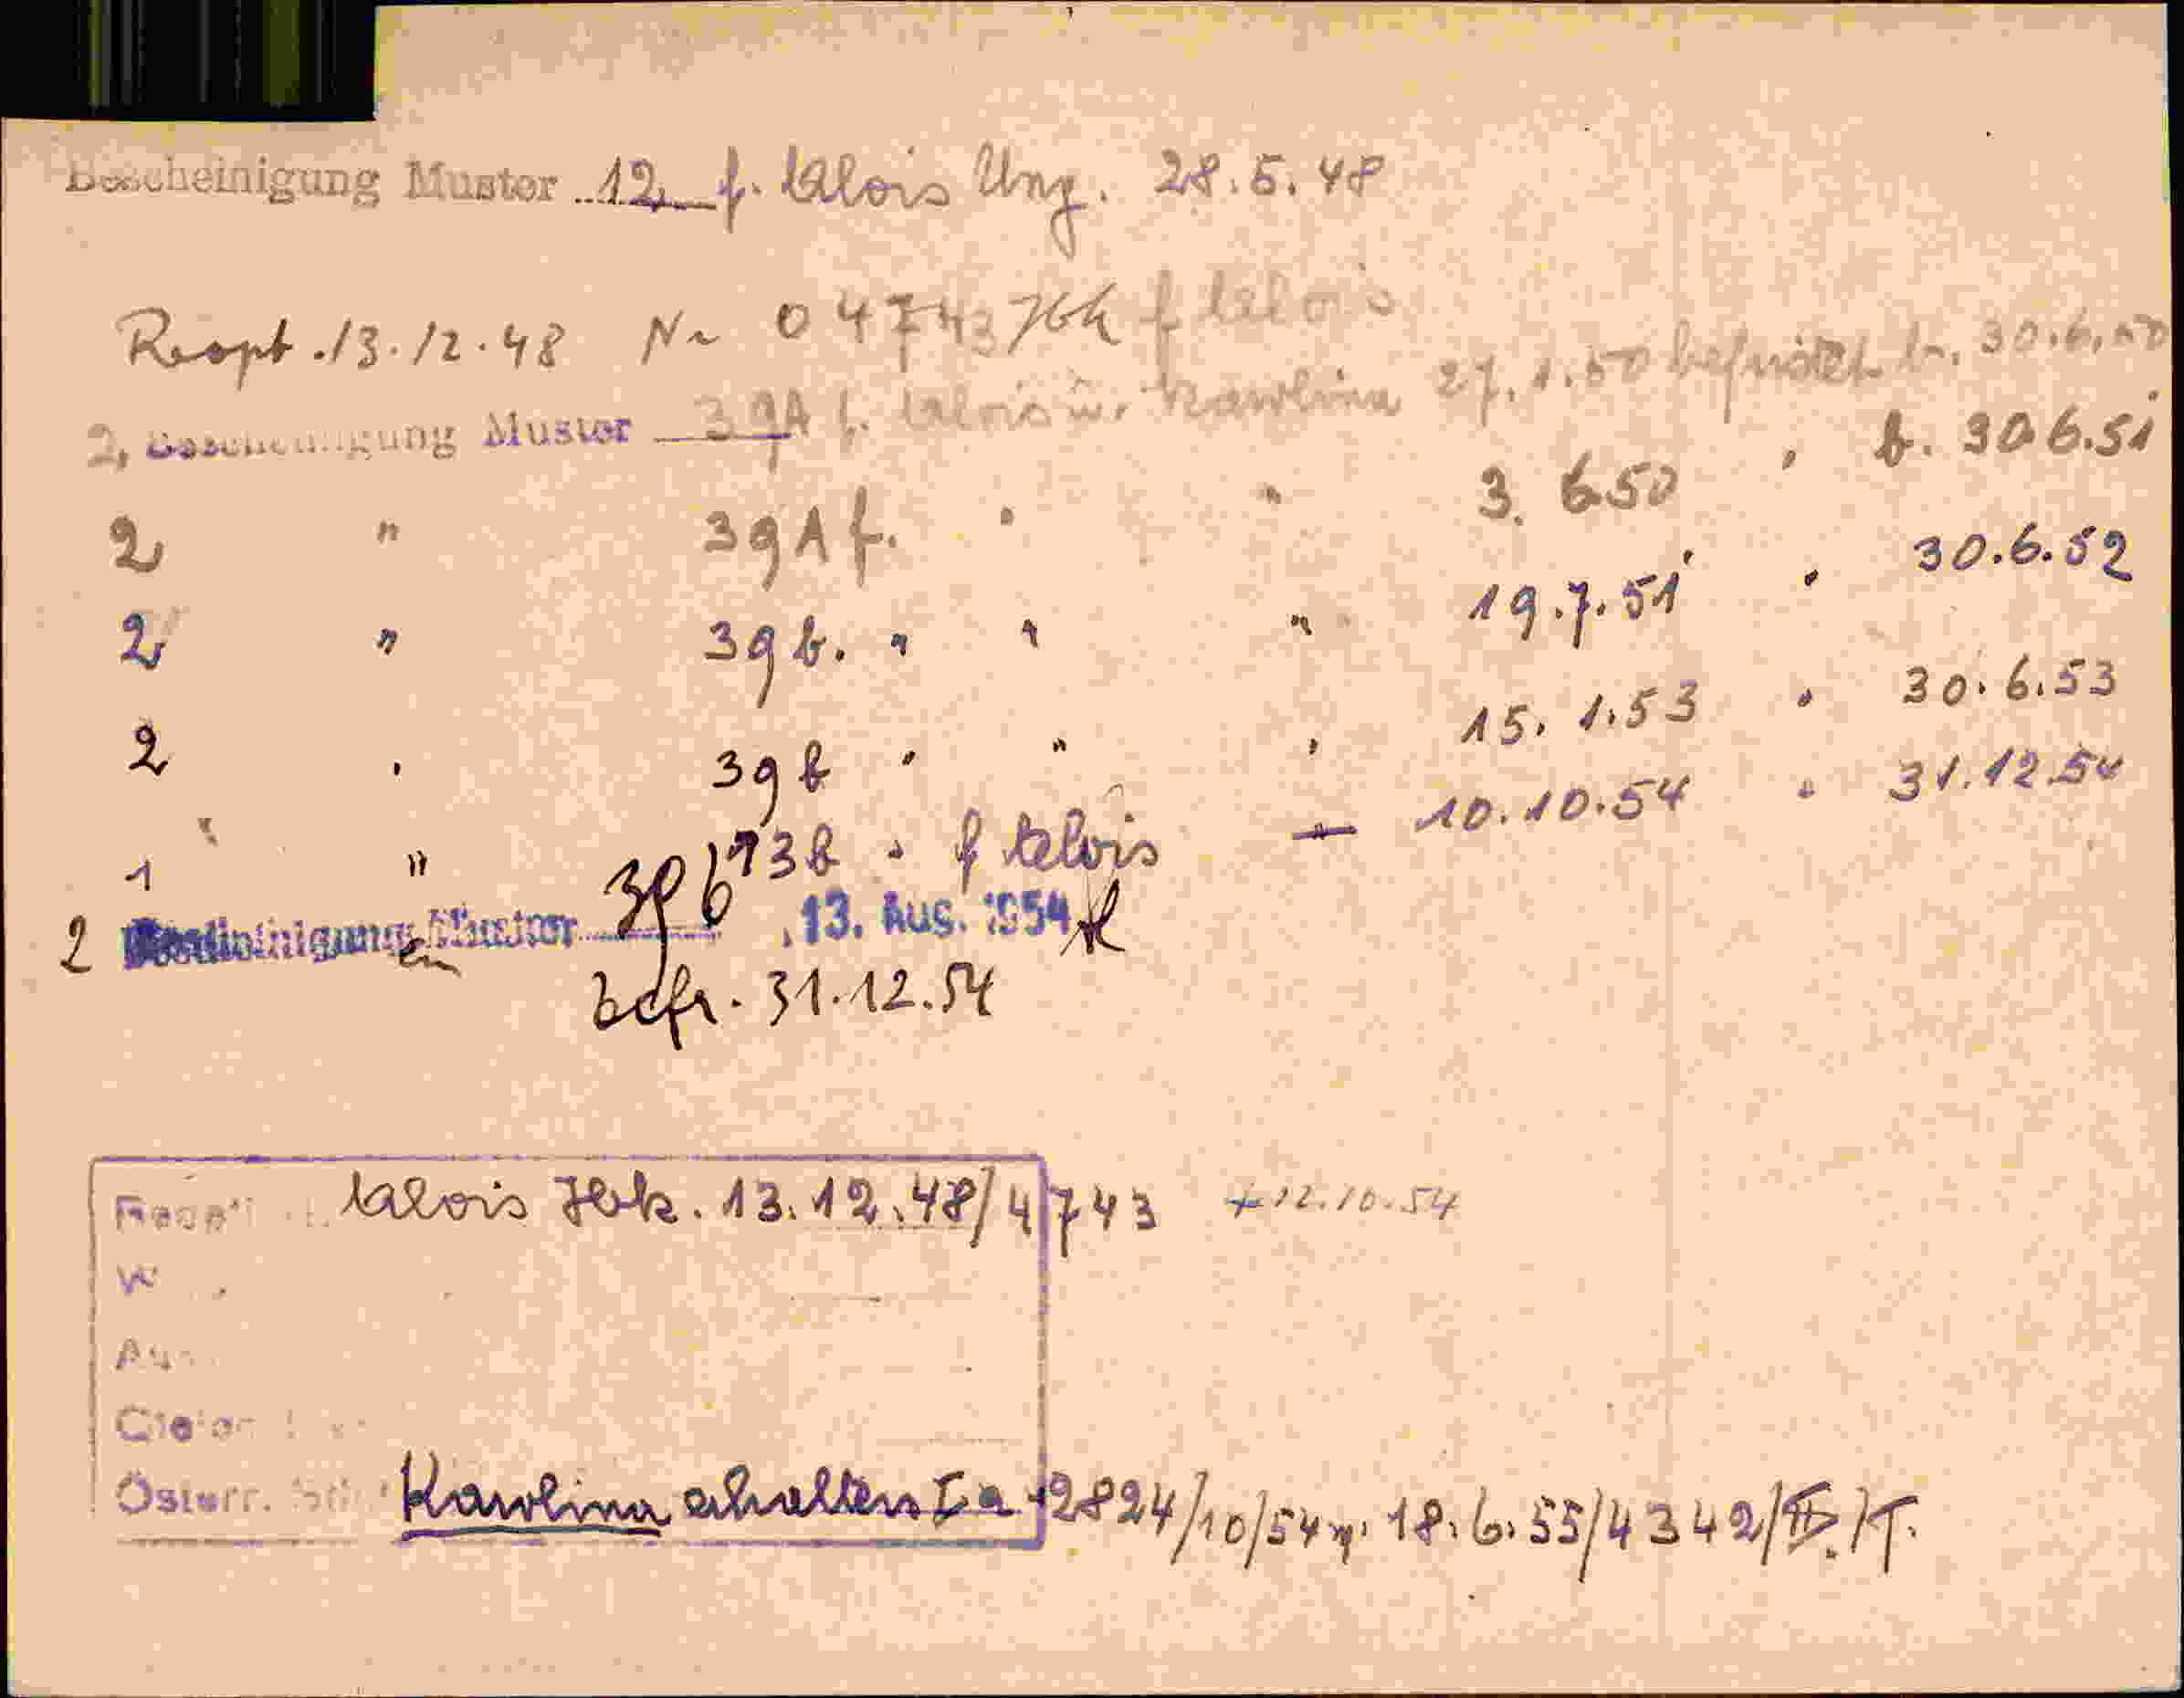 Bescheinigung Muster 12 f. Alois Ung. 28.5.48
Reopt. 13.12.48 Nr 04743 Hk f Alois
2, Bescheinigung Muster 39A f. Alois u. Karolina 27.1.50 befristet b. 30.6.50
2 " 39A f. " " 3. 6.50 " b. 30.6.51
2 " 39b. " " " 19.7.51 " 30.6.52
2 " 39b " " " 15. 1.53 " 30.6.53
1 " 73b " f Alois — 10.10.54 " 31.12.54
2 Bescheinigungen Muster 39b , 13. Aug. 1954
befr. 31.12.54
Reopt. Alois Hk. 13.12.48/4743 + 12.10.54
Österr. Karolina erhalten Ia 12824/10/54 v. 18.6.55/4342/